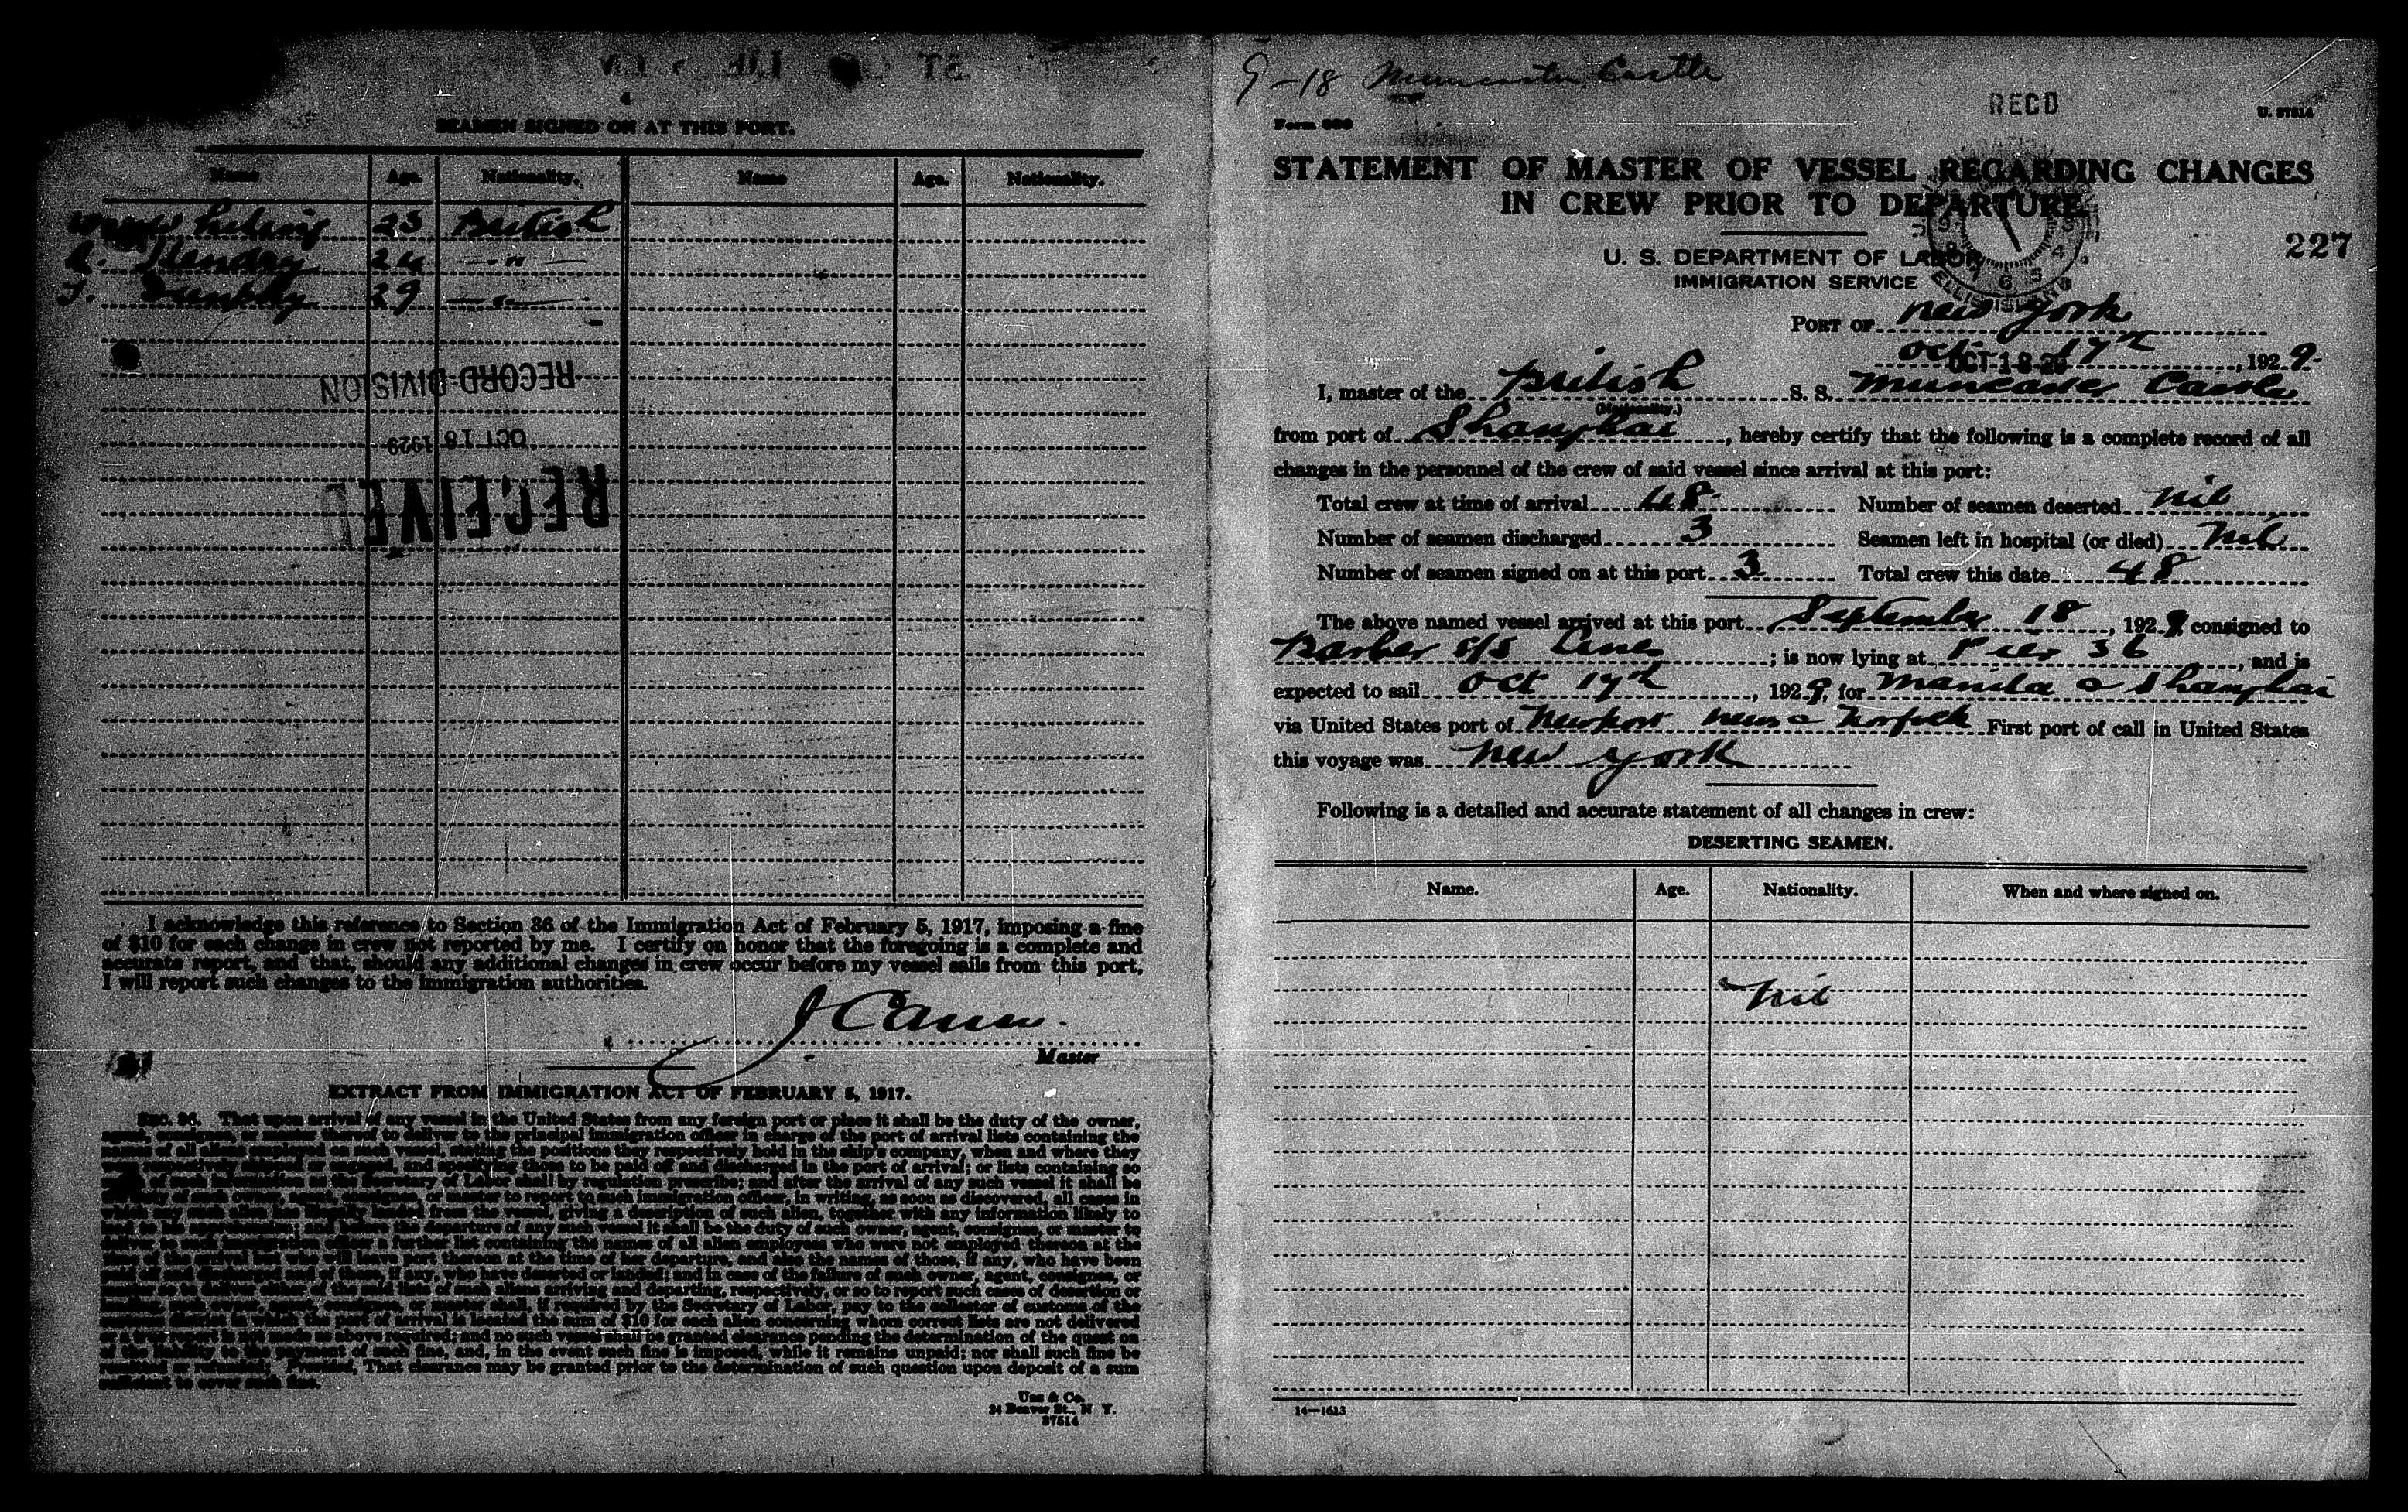 4
SEAMEN SIGNED ON AT THIS PORT.
Name Age. Nationality. Name Age. Nationality.
23 British
Hendry 24 — " —
29 — " —
RECORD DIVISION
OCT 18 1929
RECEIVED
I acknowledge this reference to Section 36 of the Immigration Act of February 5, 1917, imposing a fine
of $10 for each change in crew not reported by me. I certify on honor that the foregoing is a complete and
accurate report, and that, should any additional changes in crew occur before my vessel sails from this port,
I will report such changes to the immigration authorities.
Master
EXTRACT FROM IMMIGRATION ACT OF FEBRUARY 5, 1917.
SEC. 36. That upon arrival of any vessel in the United States from any foreign port or place it shall be the duty of the owner,
to deliver to the principal immigration officer in charge of the port of arrival lists containing the
the positions they respectively hold in the ship's company, when and where they
and specifying those to be paid off and discharged in the port of arrival; or lists containing so
of Labor shall by regulation prescribe; and after the arrival of any such vessel it shall be
master to report to such immigration officer, in writing, as soon as discovered, all cases in
from the vessel, giving a description of such alien, together with any information likely to
departure of any such vessel it shall be the duty of such owner, agent, consignee, or master to
a further list containing the names of all alien employees who were not employed thereon at the
time of her departure, and also the names of those, if any, who have been
and in case of the failure of such owner, agent, consignee, or
of such aliens arriving and departing, respectively, or so to report such cases of desertion or
shall, if required by the Secretary of Labor, pay to the collector of customs of the
in which the port of arrival is located the sum of $10 for each alien concerning whom correct lists are not delivered
or a true report is not made as above required; and no such vessel shall be granted clearance pending the determination of the quest on
of the liability to the payment of such fine, and, in the event such fine is imposed, while it remains unpaid; nor shall such fine be
remitted or refunded: Provided, That clearance may be granted prior to the determination of such question upon deposit of a sum
sufficient to cover such fine.
Unz & Co.
24 Beaver St., N Y.
37514
9-18 Muncaster Castle
RECD
Form 689 U. 37514
STATEMENT OF MASTER OF VESSEL REGARDING CHANGES
IN CREW PRIOR TO DEPARTURE
U. S. DEPARTMENT OF LABOR
IMMIGRATION SERVICE
ELLIS ISLAND
227
PORT OF New York
Oct 17th, 1929.
OCT 18 29
I, master of the British S. S. Muncaster Castle
(Nationality.)
from port of Shanghai, hereby certify that the following is a complete record of all
changes in the personnel of the crew of said vessel since arrival at this port:
Total crew at time of arrival 48. Number of seamen deserted nil
Number of seamen discharged 3 Seamen left in hospital (or died) Nil
Number of seamen signed on at this port 3 Total crew this date 48
The above named vessel arrived at this port September 18, 1929, consigned to
Barber S/S Line; is now lying at Pier 36, and is
expected to sail Oct 17th, 1929, for Manila & Shanghai
via United States port of Newport News & Norfolk First port of call in United States
this voyage was New York
Following is a detailed and accurate statement of all changes in crew:
DESERTING SEAMEN.
Name. Age. Nationality. When and where signed on.
Nil
14—1613